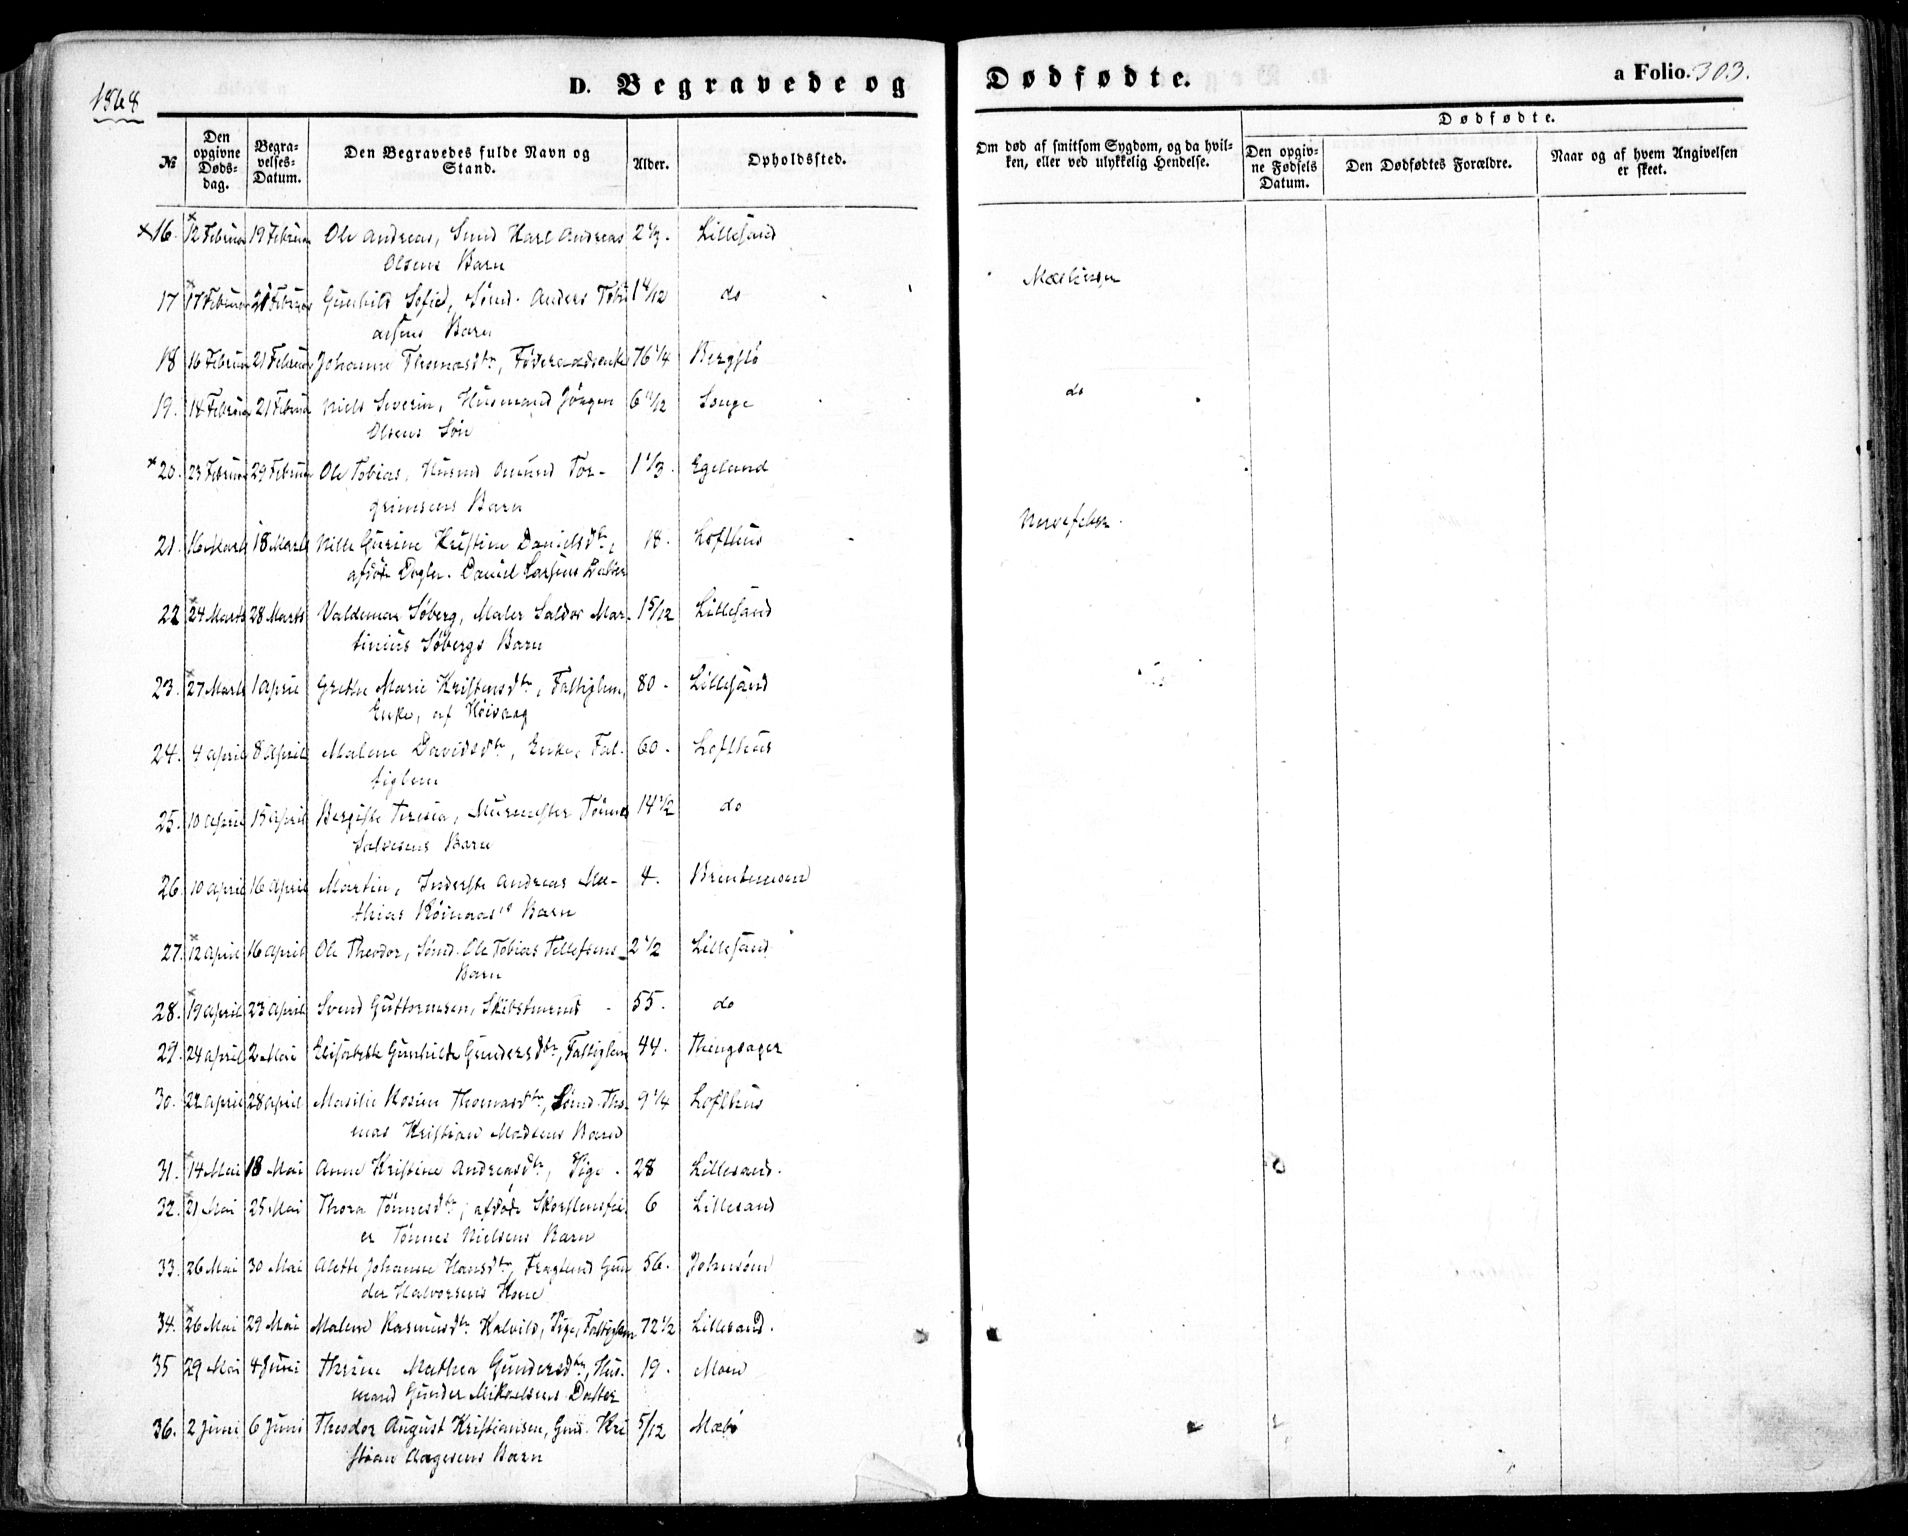 1868
D. Begravede og Dødfødte.
a Folio. 303.
№
Den opgivne Døds-dag.
Begra-velses-Datum.
Den Begravedes fulde Navn og Stand.
Alder.
Opholdssted.
Om død af smitsom Sygdom, og da hvil-ken, eller ved ulykkelig Hendelse.
Dødfødte.
Den opgiv-ne Fødsels Datum.
Den Dødfødtes Forældre.
Naar og af hvem Angivelsen er skeet.
16. 12 Februar 19 Februar Ole Andreas, Andreas 2 1/3. Lillesand
Olsens Barn
17 17 Februar 21 Februar Gunhild Sofie, Sømd. Anders Tobi 1 4/12 do
asens Barn
18 16 Februar 21 Februar Johanne Thomasdtr, Føderaadsenke 76 1/4 Bergslö
19. 14 Februar 21 Februar Niels Severin, Husmand Jörgen 6 11/12 Songe do
Olsens Sön
20. 23 Februar 29 Februar Ole Tobias, Husmd Omund Tor- 1 1/3. Egeland
grimsens Barn
21. 16 Marts 18 Marts Gurine Kristine Danielsdtr, 18. Lofthus Nervefeber.
afdøde Daniel Larsens Datter
22 24 Marts 28 Marts Valdemar Söberg, Maler Salvor Mar- 1 5/12 Lillesand
tinius Söbergs Barn
23. 27 Marts 1 April Grethe Marie Kristensdtr, Fattiglem, 80 - Lillesand
Enke, af Höivaag
24. 4 April 8 April Malene Davidsdtr, Enke, Fat- 60 - Lofthus
tiglem
25. 10 April 15 April Bergitte Teresia, Murmester Tönnes 14 1/2 do
Salvesens Barn
26. 10 April 16 April Martin, Inderste Andreas Ma- 4.
thias Barn
27. 12 April 16 April Ole Theodor, Sömd. Ole Tobias Tellefsens 2 1/2 Lillesand
Barn
28. 19 April 23 April Svend Guttormsen, Skibstmmd - 55. do
29. 24 April 2 Mai Elisabeth Gunhilde Gundersdtr, Fattiglem 44. Thingsager
30. 22 April 28 April Rosine Thomasdtr, Sömd. Tho 9 1/4 Lofthus
mas Kristian Madsens Barn
31. 14 Mai 18 Mai Anne Kristine Andreasdtr, Pige. 28 Lillesand.
32. 21 Mai 25 Mai Thora Tönnesdtr, afdøde Skorstensfei 6 Lillesand
er Tönnes Nielsens Barn
33. 26 Mai 30 Mai Alette Johanne Hansdtr, Gun 56. Johnsöen
der Halvorsens Kone
34. 26 Mai 29 Mai Malene Rasmusdtr Kalvild, Pige, Fattiglem 72 1/2 Lillesand.
35 29 Mai 4 Juni Thrine Mathea Gundersdtr, Hus- 19. Moen
mand Gunder Mikaelsens Datter
36. 2 Juni 6 Juni Theodor August Kristiansen, Gmd. Kri 5/12 Mæbö
stian Aagesens Barn